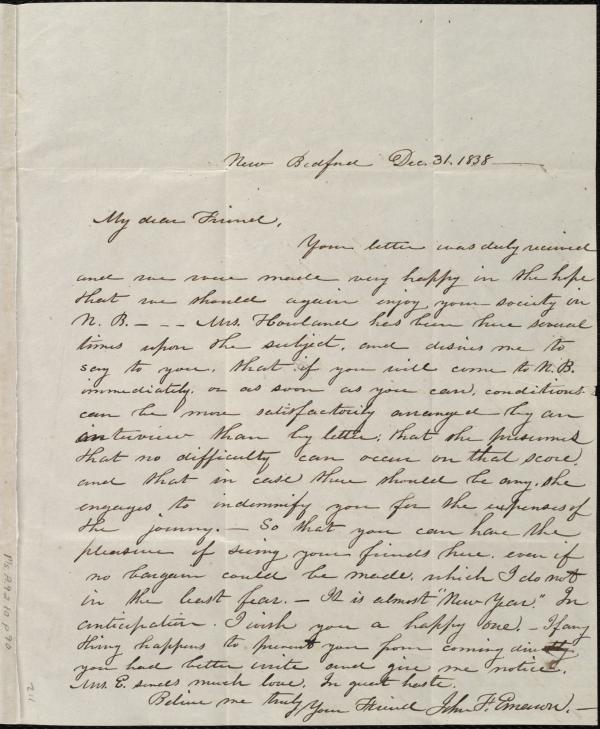 New Bedford Dec. 31. 1838
My dear Friend,
Your letter was duly received
and we were made very happy in the hope
that we should again enjoy your society in
N. B. - - - Mrs. Howland has been here several
times upon the subject, and desires me to
say to you, that if you will come to N. B.
immediately, or as soon as you can, conditions
can be more satisfactorily arranged by an
interview than by letter; that she presumes
that no difficulty can occur on that score,
and that in case there should be any, she
engages to indemnify you for the expenses of
the journey. - So that you can have the
pleasure of seeing your friends here, even if
no bargain could be made, which I do not
in the least fear. - It is almost "New Year." In
anticipation, I wish you a happy one. - If any
thing happens to prevent you from coming
you had better write and give me notice.
Mrs. E. sends much love. In great haste.
Believe me truly your Friend John F. Emerson. -
Ms. A.9.2. 10 p 90